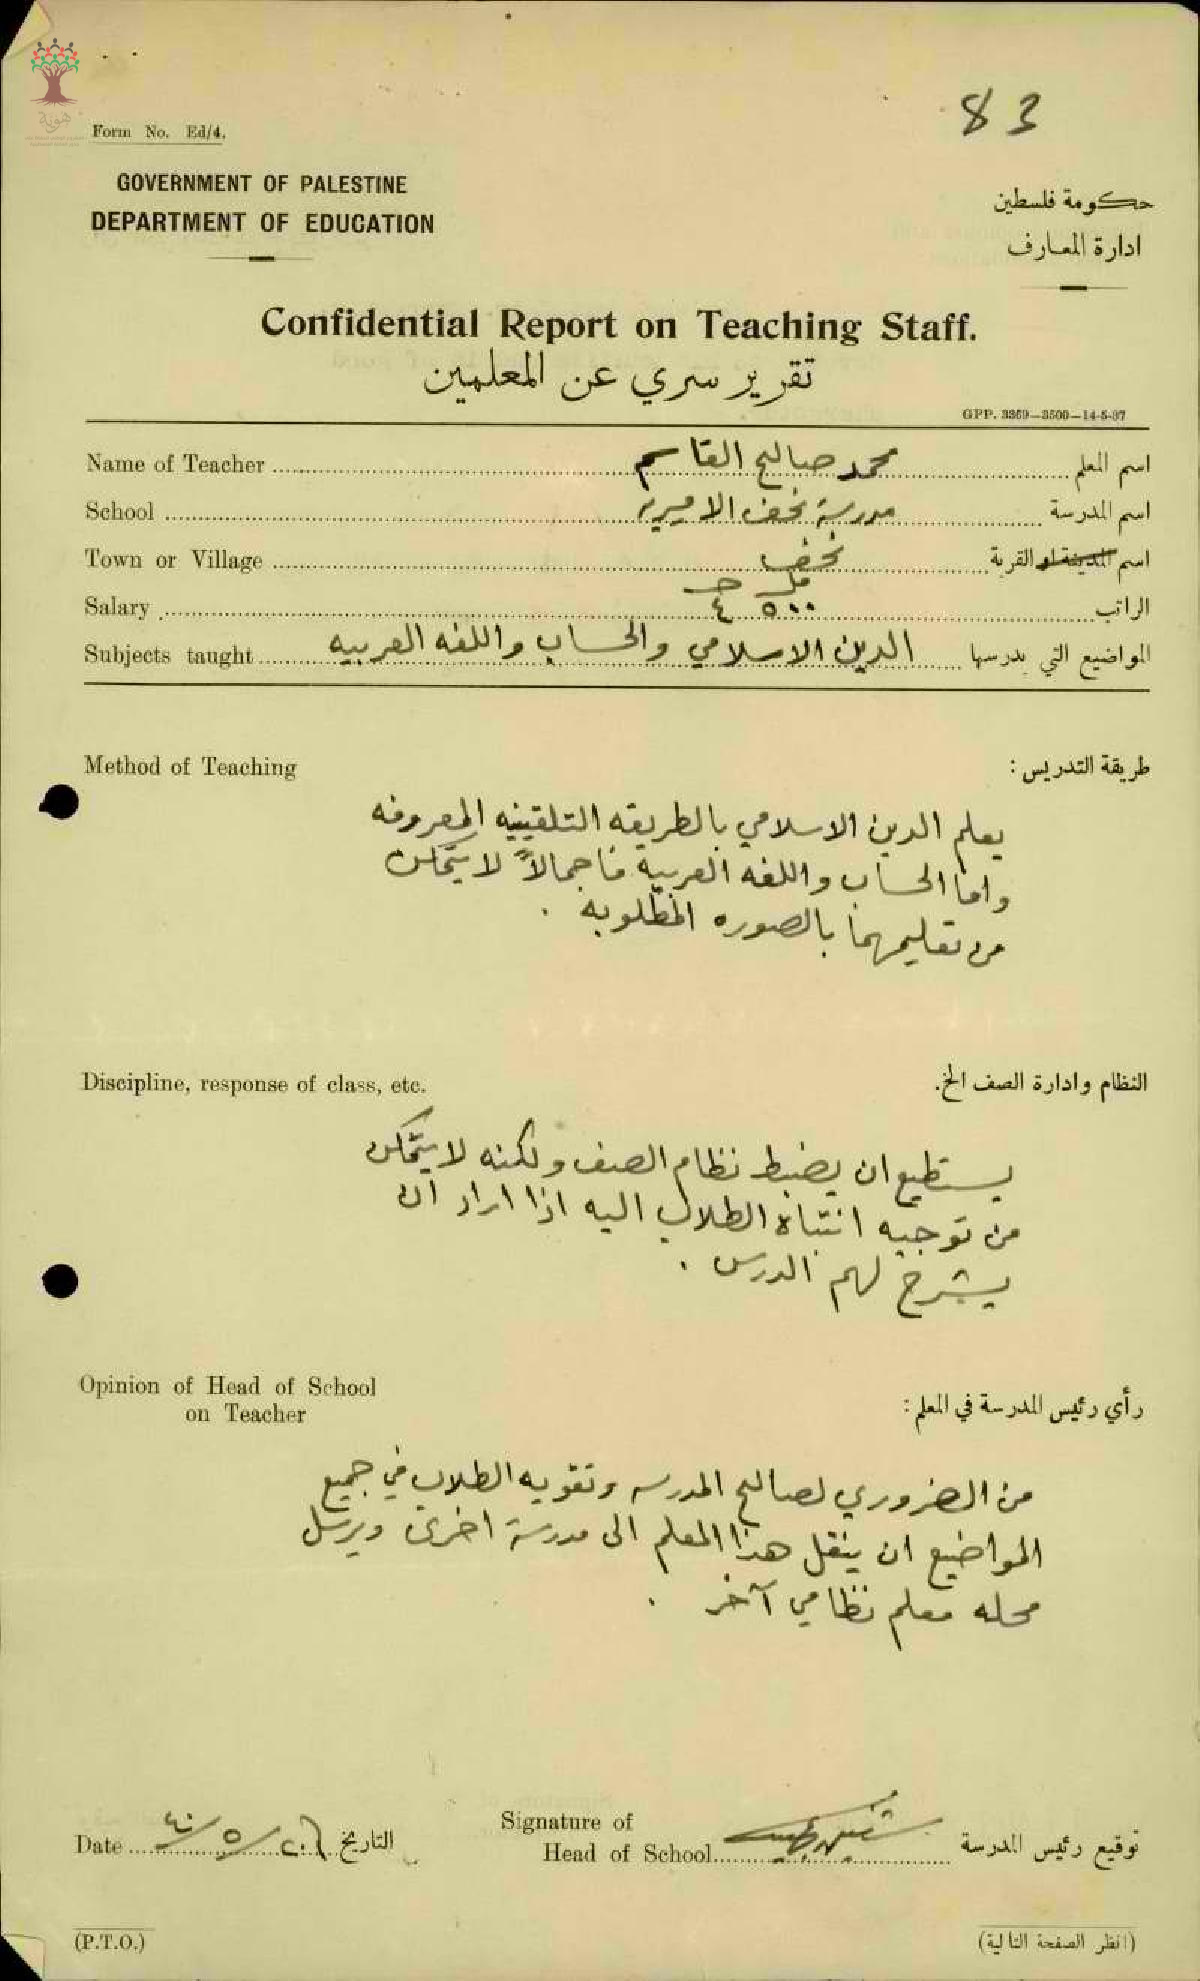 هوية
83
Form No. Ed/4.
GOVERNMENT OF PALESTINE
DEPARTMENT OF EDUCATION
حكومة فلسطين
ادارة المعارف
Confidential Report on Teaching Staff.
تقرير سري عن المعلمين
GPP. 3369—3500—14-5-37
Name of Teacher محمد صالح القاسم اسم المعلم
School مدرسة نحف الاميريه اسم المدرسة
Town or Village نحف اسم المدينة او القرية
مل ج
Salary ٥٠٠ ٤ الراتب
Subjects taught الدين الاسلامي والحساب واللغه العربيه المواضيع التي يدرسها
Method of Teaching طريقة التدريس :
يعلم الدين الاسلامي بالطريقه التلقينيه المعروفه
واما الحساب واللغه العربية فاجمالاً لا يتمكن
من تعليمهما بالصوره المطلوبه .
Discipline, response of class, etc. النظام وادارة الصف الخ.
يستطيع ان يضبط نظام الصف ولكنه لا يتمكن
من توجيه انتباه الطلاب اليه اذا اراد ان
يشرح لهم الدرس .
Opinion of Head of School
on Teacher
رأي رئيس المدرسة في المعلم :
من الضروري لصالح المدرسه وتقويه الطلاب في جميع
المواضيع ان ينقل هذا المعلم الى مدرسة اخرى ويرسل
محله معلم نظامي آخر .
Date ٤٠/٥/٢٠ التاريخ
Signature of
Head of School توقيع رئيس المدرسة
(P.T.O.)
(انظر الصفحة التالية)